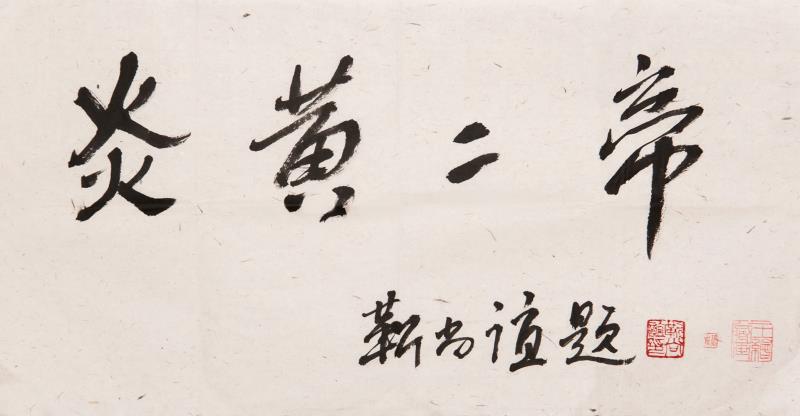 炎黄二帝
靳尚谊题